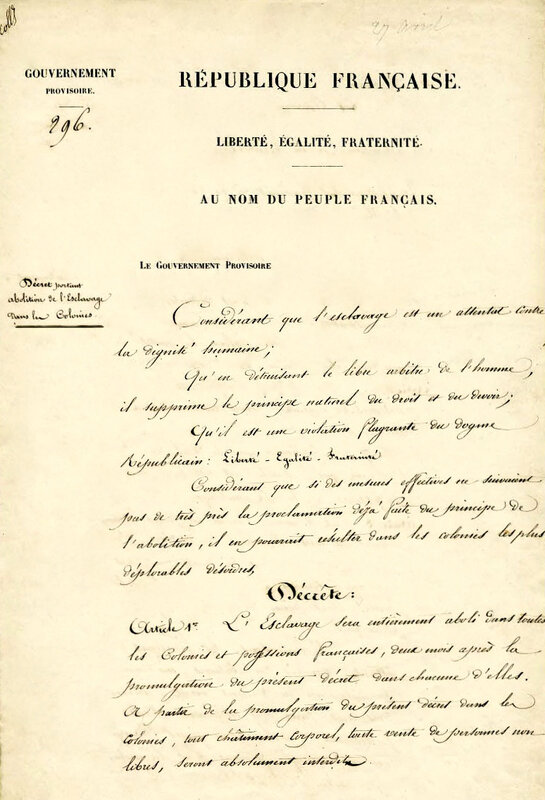 colls
27 avril
GOUVERNEMENT
PROVISOIRE.
296.
RÉPUBLIQUE FRANÇAISE.
LIBERTÉ, ÉGALITÉ, FRATERNITÉ.
AU NOM DU PEUPLE FRANÇAIS.
LE GOUVERNEMENT PROVISOIRE
Décret portant
abolition de l'Esclavage
dans les Colonies.
Considérant que l'esclavage est un attentat contre
la dignité humaine;
Qu'en détruisant le libre arbitre de l'homme,
il supprime le principe naturel du droit et du devoir;
Qu'il est une violation flagrante du dogme
Républicain: Liberté - Egalité - Fraternité
Considérant que si des mesures effectives ne suivaient
pas de très près la proclamation déjà faite du principe de
l'abolition, il en pourrait résulter dans les colonies les plus
déplorables désordres,
Décrète:
Article 1er L'Esclavage sera entièrement aboli dans toutes
les Colonies et possessions françaises, deux mois après la
promulgation du présent décret dans chacune d'elles.
A partir de la promulgation du présent décret dans les
colonies, tout châtiment corporel, toute vente de personnes non
libres, seront absolument interdits.